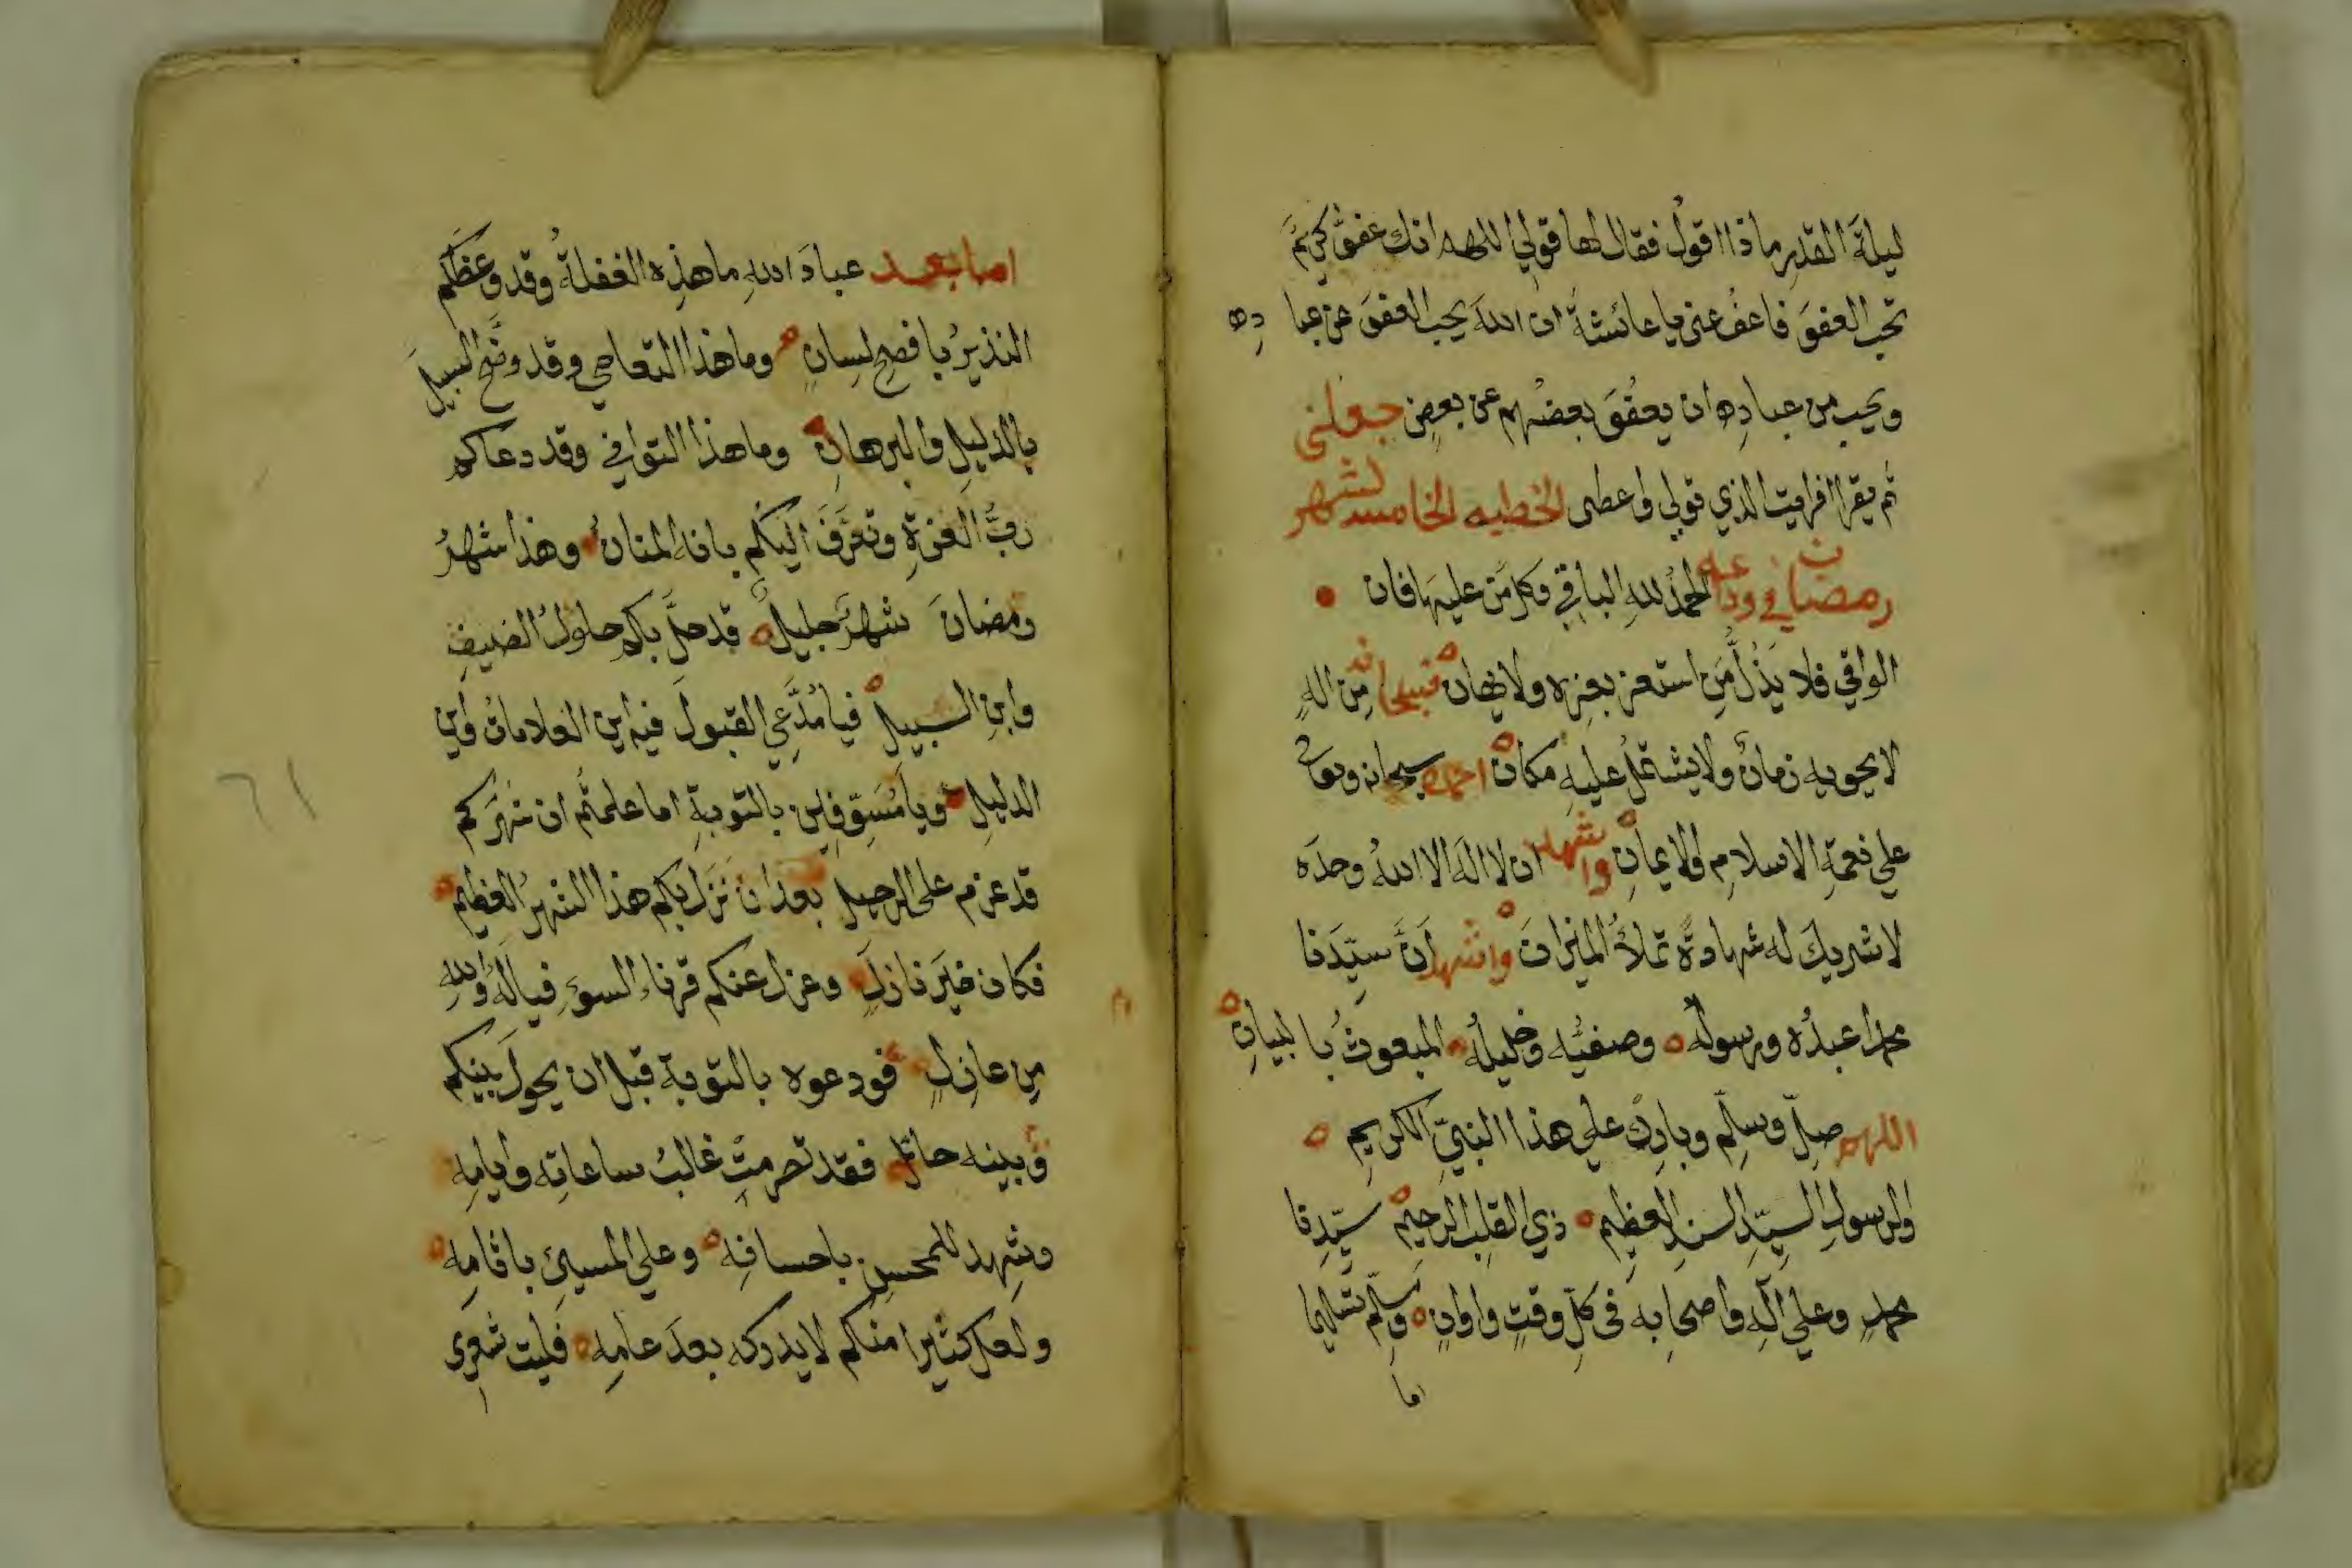 ليلةَ القدرِ ماذا اقولُ فقال لها قولي اللهم انك عفوٌّ كريمٌ
تحب العفوَ فاعفُ عني يا عائشةُ ان اللهَ يحب العفوَ عن عبادِه
ويحب من عبادِه ان يعفُوَ بعضُهم عن بعضٍ جعلني
ثم يقرا افرايت الذي تولي واعطى الخطبه الخامسه لشهر
رمضان في وداعه الحمدُ للهِ الباقي وكلُّ مَن عليها فان
الواقي فلا يَذلُّ مَن استعز بعزه ولا يهان فسبحانه مِن الهٍ
لا يحويه زمانٌ ولا يشتمل عليه مكان احمده سبحانه وتعالى
علي نعمةِ الاسلامِ والايمانِ واشهد ان لا اله الا اللهُ وحدَه
لا شريكَ له شهادةً تملأُ الميزانَ واشهد اَنَّ سيّدَنا
محمدا عبدُه ورسولُه وصفيُّه وخليلُه المبعوثُ بالبيانِ
اللهم صلِّ وسلِّم وباركْ علي هذا النبيِّ الكريمِ
والرسولِ السيّدِ السندِ العظيمِ ذي القلبِ الرحيمِ سيّدِنا
محمدٍ وعلي آلِه واصحابِه في كلِّ وقتٍ واوانٍ وسلِّم تسليما
اما
اما بعد عبادَ اللهِ ما هذِه الغفلةُ وقد وعظَكم
النذيرُ بافصحِ لسانٍ وما هذا التعامي وقد وضَّح السبيلَ
بالدليلِ والبرهانِ وما هذا التواني وقد دعاكم
ربُّ العزةِ وتعرَّفَ اليكُم بانه المنانُ وهذا شهرُ
رمضانَ شهرٌ جليلٌ قد حلَّ بكم حلولُ الضيفِ
وابنِ السبيلِ فيا مُدَّعي القبولَ فيه اين العلاماتُ واين
الدليل ويا مُسَوِّفين بالتوبةِ اما علمتُم ان شهرَكم
قد عزم على الرحيل بعد ان نَزَل بكم هذا الشهرُ العظيم
فكان خيرَ نازلٍ وعزل عنكم قرناء السوءِ فيا لَهُ واللهِ
مِن عازلٍ فودعوه بالتوبة قبل ان يحولَ بينكم
وبينه حائل فقد تصرمتْ غالبُ ساعاتِه وايامِه
وشهِد للمحسنِ باحسانِه وعلي المسيئ باثامِه
ولعل كثيرا منكم لا يدركه بعدَ عامِه فليت شعري
٦١